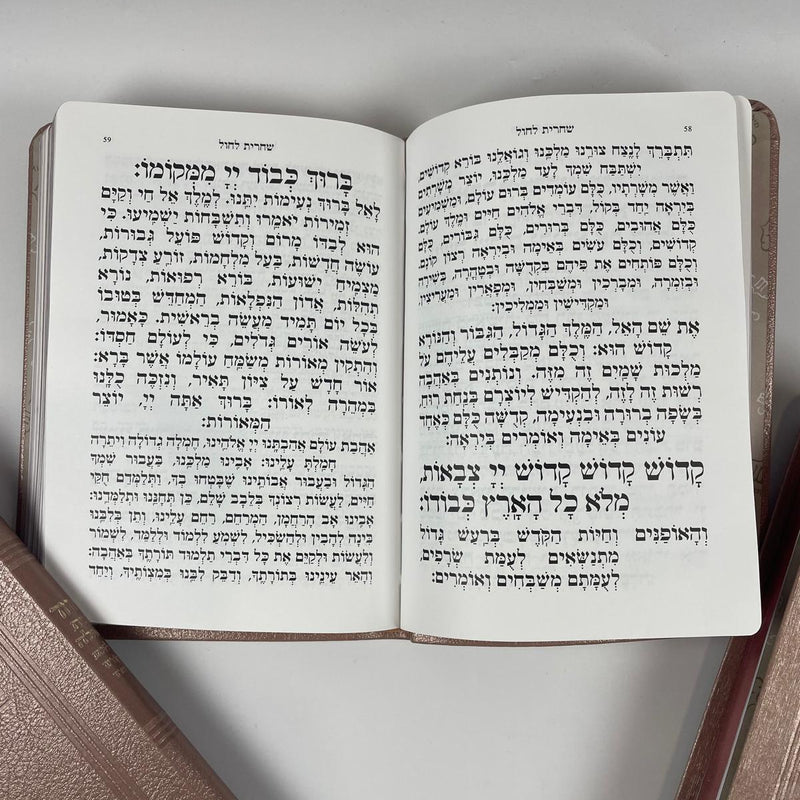 58
שחרית לחול
תִּתְבָּרַךְ לָנֶצַח צוּרֵנוּ מַלְכֵּנוּ וְגוֹאֲלֵנוּ בּוֹרֵא קְדוֹשִׁים,
יִשְׁתַּבַּח שִׁמְךָ לָעַד מַלְכֵּנוּ, יוֹצֵר מְשָׁרְתִים
וַאֲשֶׁר מְשָׁרְתָיו, כֻּלָּם עוֹמְדִים בְּרוּם עוֹלָם, וּמַשְׁמִיעִים
בְּיִרְאָה יַחַד בְּקוֹל, דִּבְרֵי אֱלֹהִים חַיִּים וּמֶלֶךְ עוֹלָם.
כֻּלָּם אֲהוּבִים, כֻּלָּם בְּרוּרִים, כֻּלָּם גִּבּוֹרִים, כֻּלָּם
קְדוֹשִׁים, וְכֻלָּם עֹשִׂים בְּאֵימָה וּבְיִרְאָה רְצוֹן קוֹנָם,
וְכֻלָּם פּוֹתְחִים אֶת פִּיהֶם בִּקְדֻשָּׁה וּבְטָהֳרָה, בְּשִׁירָה
וּבְזִמְרָה, וּמְבָרְכִין וּמְשַׁבְּחִין, וּמְפָאֲרִין וּמַעֲרִיצִין,
וּמַקְדִּישִׁין וּמַמְלִיכִין:
אֶת שֵׁם הָאֵל, הַמֶּלֶךְ הַגָּדוֹל, הַגִּבּוֹר וְהַנּוֹרָא
קָדוֹשׁ הוּא: וְכֻלָּם מְקַבְּלִים עֲלֵיהֶם עֹל
מַלְכוּת שָׁמַיִם זֶה מִזֶּה. וְנוֹתְנִים בְּאַהֲבָה
רְשׁוּת זֶה לָזֶה, לְהַקְדִּישׁ לְיוֹצְרָם בְּנַחַת רוּחַ,
בְּשָׂפָה בְרוּרָה וּבִנְעִימָה, קְדֻשָּׁה כֻּלָּם כְּאֶחָד
עוֹנִים בְּאֵימָה וְאוֹמְרִים בְּיִרְאָה:
קָדוֹשׁ קָדוֹשׁ קָדוֹשׁ יְיָ צְבָאוֹת,
מְלֹא כָל הָאָרֶץ כְּבוֹדוֹ:
וְהָאוֹפַנִּים וְחַיּוֹת הַקֹּדֶשׁ בְּרַעַשׁ גָּדוֹל
מִתְנַשְּׂאִים לְעֻמַּת שְׂרָפִים,
לְעֻמָּתָם מְשַׁבְּחִים וְאוֹמְרִים:
59
שחרית לחול
בָּרוּךְ כְּבוֹד יְיָ מִמְּקוֹמוֹ:
לָאֵל בָּרוּךְ נְעִימוֹת יִתֵּנוּ. לְמֶלֶךְ אֵל חַי וְקַיָּם
זְמִירוֹת יֹאמֵרוּ וְתִשְׁבָּחוֹת יַשְׁמִיעוּ. כִּי
הוּא לְבַדּוֹ מָרוֹם וְקָדוֹשׁ פּוֹעֵל גְּבוּרוֹת,
עוֹשֶׂה חֲדָשׁוֹת, בַּעַל מִלְחָמוֹת, זוֹרֵעַ צְדָקוֹת,
מַצְמִיחַ יְשׁוּעוֹת, בּוֹרֵא רְפוּאוֹת, נוֹרָא
תְהִלּוֹת, אֲדוֹן הַנִּפְלָאוֹת, הַמְחַדֵּשׁ בְּטוּבוֹ
בְּכָל יוֹם תָּמִיד מַעֲשֵׂה בְרֵאשִׁית. כָּאָמוּר,
לְעֹשֵׂה אוֹרִים גְּדֹלִים, כִּי לְעוֹלָם חַסְדּוֹ:
וְהִתְקִין מְאוֹרוֹת מְשַׂמֵּחַ עוֹלָמוֹ אֲשֶׁר בָּרָא:
אוֹר חָדָשׁ עַל צִיּוֹן תָּאִיר, וְנִזְכֶּה כֻלָּנוּ
בִּמְהֵרָה לְאוֹרוֹ: בָּרוּךְ אַתָּה יְיָ, יוֹצֵר
הַמְּאוֹרוֹת:
אַהֲבַת עוֹלָם אֲהַבְתָּנוּ יְיָ אֱלֹהֵינוּ, חֶמְלָה גְדוֹלָה וִיתֵרָה
חָמַלְתָּ עָלֵינוּ: אָבִינוּ מַלְכֵּנוּ, בַּעֲבוּר שִׁמְךָ
הַגָּדוֹל וּבַעֲבוּר אֲבוֹתֵינוּ שֶׁבָּטְחוּ בְךָ, וַתְּלַמְּדֵם חֻקֵּי
חַיִּים, לַעֲשׂוֹת רְצוֹנְךָ בְּלֵבָב שָׁלֵם, כֵּן תְּחָנֵּנוּ וּתְלַמְּדֵנוּ:
אָבִינוּ אָב הָרַחֲמָן, הַמְרַחֵם, רַחֵם עָלֵינוּ, וְתֵן בְּלִבֵּנוּ
בִּינָה לְהָבִין וּלְהַשְׂכִּיל, לִשְׁמֹעַ לִלְמוֹד וּלְלַמֵּד, לִשְׁמוֹר
וְלַעֲשׂוֹת וּלְקַיֵּם אֶת כָּל דִּבְרֵי תַלְמוּד תּוֹרָתֶךָ בְּאַהֲבָה:
וְהָאֵר עֵינֵינוּ בְּתוֹרָתֶךָ, וְדַבֵּק לִבֵּנוּ בְּמִצְוֹתֶיךָ, וְיַחֵד